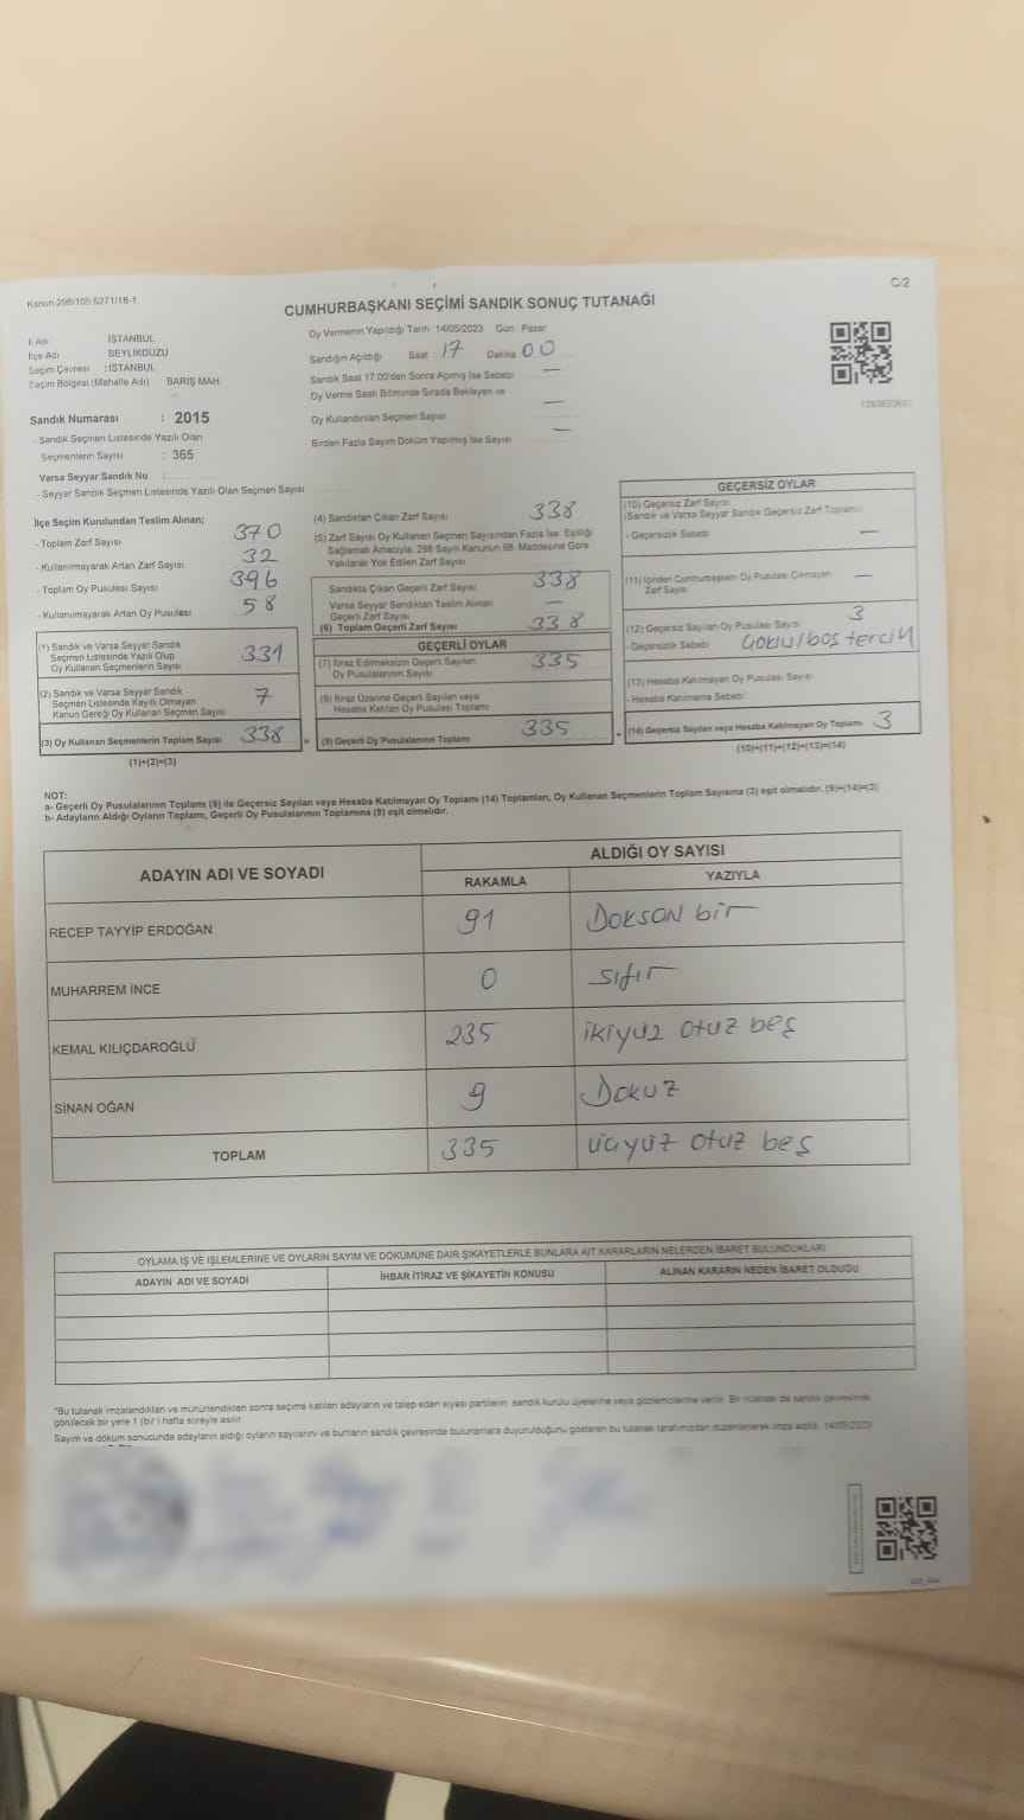 Kanun 298/105 6271/18-1
C/2
CUMHURBAŞKANI SEÇİMİ SANDIK SONUÇ TUTANAĞI
İl Adı İSTANBUL
İlçe Adı BEYLİKDÜZÜ
Seçim Çevresi : İSTANBUL
Seçim Bölgesi (Mahalle Adı) BARIŞ MAH.
Sandık Numarası : 2015
- Sandık Seçmen Listesinde Yazılı Olan
Seçmenlerin Sayısı : 365
Varsa Seyyar Sandık No
- Seyyar Sandık Seçmen Listesinde Yazılı Olan Seçmen Sayısı
Oy Vermenin Yapıldığı Tarih 14/05/2023 Gün Pazar
Sandığın Açıldığı Saat 17 Dakika 00
Sandık Saat 17:00'den Sonra Açılmış İse Sebebi —
Oy Verme Saati Bitiminde Sırada Bekleyen ve
Oy Kullandırılan Seçmen Sayısı —
Birden Fazla Sayım Döküm Yapılmış İse Sayısı —
İlçe Seçim Kurulundan Teslim Alınan;
- Toplam Zarf Sayısı 370
- Kullanılmayarak Artan Zarf Sayısı 32
- Toplam Oy Pusulası Sayısı 396
- Kullanılmayarak Artan Oy Pusulası 58
(1) Sandık ve Varsa Seyyar Sandık
Seçmen Listesinde Yazılı Olup
Oy Kullanan Seçmenlerin Sayısı 331
(2) Sandık ve Varsa Seyyar Sandık
Seçmen Listesinde Kayıtlı Olmayan
Kanun Gereği Oy Kullanan Seçmen Sayısı 7
(3) Oy Kullanan Seçmenlerin Toplam Sayısı 338
(1)+(2)=(3)
(4) Sandıktan Çıkan Zarf Sayısı 338
(5) Zarf Sayısı Oy Kullanan Seçmen Sayısından Fazla İse; Eşitliği
Sağlamak Amacıyla, 298 Sayılı Kanunun 98. Maddesine Göre
Yakılarak Yok Edilen Zarf Sayısı
Sandıkta Çıkan Geçerli Zarf Sayısı 338
Varsa Seyyar Sandıktan Teslim Alınan
Geçerli Zarf Sayısı —
(6) Toplam Geçerli Zarf Sayısı 338
GEÇERLİ OYLAR
(7) İtiraz Edilmeksizin Geçerli Sayılan
Oy Pusulalarının Sayısı 335
(8) İtiraz Üzerine Geçerli Sayılan veya
Hesaba Katılan Oy Pusulası Toplamı
(9) Geçerli Oy Pusulalarının Toplamı 335
GEÇERSİZ OYLAR
(10) Geçersiz Zarf Sayısı
(Sandık ve Varsa Seyyar Sandık Geçersiz Zarf Toplamı)
- Geçersizlik Sebebi —
(11) İçinden Cumhurbaşkanı Oy Pusulası Çıkmayan
Zarf Sayısı —
(12) Geçersiz Sayılan Oy Pusulası Sayısı 3
- Geçersizlik Sebebi çoklu/boş tercih
(13) Hesaba Katılmayan Oy Pusulası Sayısı
- Hesaba Katılmama Sebebi
(14) Geçersiz Sayılan veya Hesaba Katılmayan Oy Toplamı 3
(10)+(11)+(12)+(13)=(14)
NOT:
a- Geçerli Oy Pusulalarının Toplamı (9) ile Geçersiz Sayılan veya Hesaba Katılmayan Oy Toplamı (14) Toplamları, Oy Kullanan Seçmenlerin Toplam Sayısına (3) eşit olmalıdır. (9)+(14)=(3)
b- Adayların Aldığı Oyların Toplamı, Geçerli Oy Pusulalarının Toplamına (9) eşit olmalıdır.
ADAYIN ADI VE SOYADI
ALDIĞI OY SAYISI
RAKAMLA YAZIYLA
RECEP TAYYİP ERDOĞAN 91 Doksan bir
MUHARREM İNCE 0 sıfır
KEMAL KILIÇDAROĞLU 235 ikiyüz otuz beş
SİNAN OĞAN 9 Dokuz
TOPLAM 335 üçyüz otuz beş
OYLAMA İŞ VE İŞLEMLERİNE VE OYLARIN SAYIM VE DÖKÜMÜNE DAİR ŞİKAYETLERLE BUNLARA AİT KARARLARIN NELERDEN İBARET BULUNDUKLARI
ADAYIN ADI VE SOYADI İHBAR İTİRAZ VE ŞİKAYETİN KONUSU ALINAN KARARIN NEDEN İBARET OLDUĞU
*Bu tutanak imzalandıktan ve mühürlendikten sonra seçime katılan adayların ve talep eden siyasi partilerin sandık kurulu üyelerine veya gözlemcilerine verilir. Bir nüshası da sandık çevresinde
görülecek bir yere 1 (bir) hafta süreyle asılır.
Sayım ve döküm sonucunda adayların aldığı oyların sayılarını ve bunların sandık çevresinde bulunanlara duyurulduğunu gösteren bu tutanak tarafımızdan düzenlenerek imza edildi. 14/05/2023